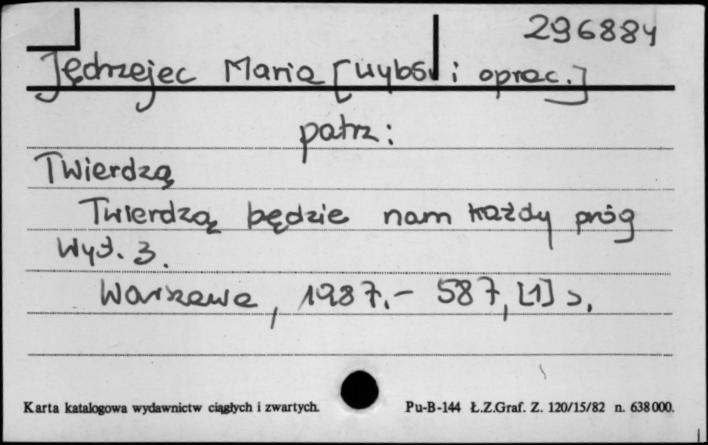 296884
Jędrzejec Maria [wybór i oprac.]
patrz:
Twierdzą
Twierdzą będzie nam każdy próg
Wyd. 3.
Warszawa, 1987.- 587, [1] s.
Karta katalogowa wydawnictw ciągłych i zwartych. Pu-B-144 Ł.Z.Graf. Z. 120/15/82 n. 638000.